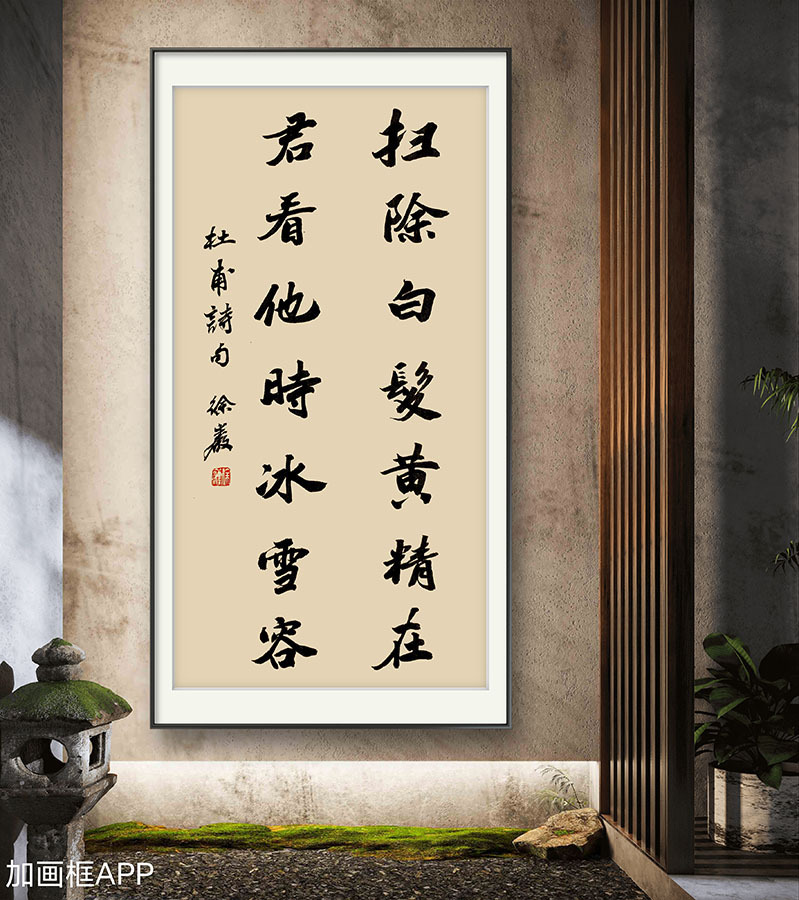 扫除白髮黄精在
君看他時冰雪容
杜甫詩句 徐嚴
加画框APP